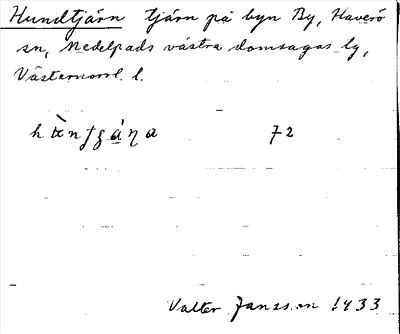 Hundtjärn tjärn på byn By, Haverö
sn, Medelpads västra domsagas lg,
Västernorrl. l.
72
Valter Jansson 1933